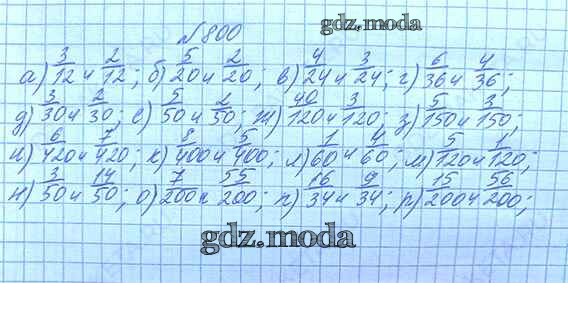 №800
gdz.moda
а) 3/12 и 2/12; б) 5/20 и 2/20; в) 4/24 и 3/24; г) 6/36 и 4/36;
д) 3/30 и 2/30; е) 5/50 и 2/50; ж) 40/120 и 3/120; з) 5/150 и 3/150;
и) 6/420 и 7/420; к) 8/400 и 5/400; л) 1/60 и 4/60; м) 5/120 и 1/120;
н) 3/50 и 14/50; о) 7/200 и 55/200; п) 16/34 и 9/34; р) 15/200 и 56/200;
gdz.moda